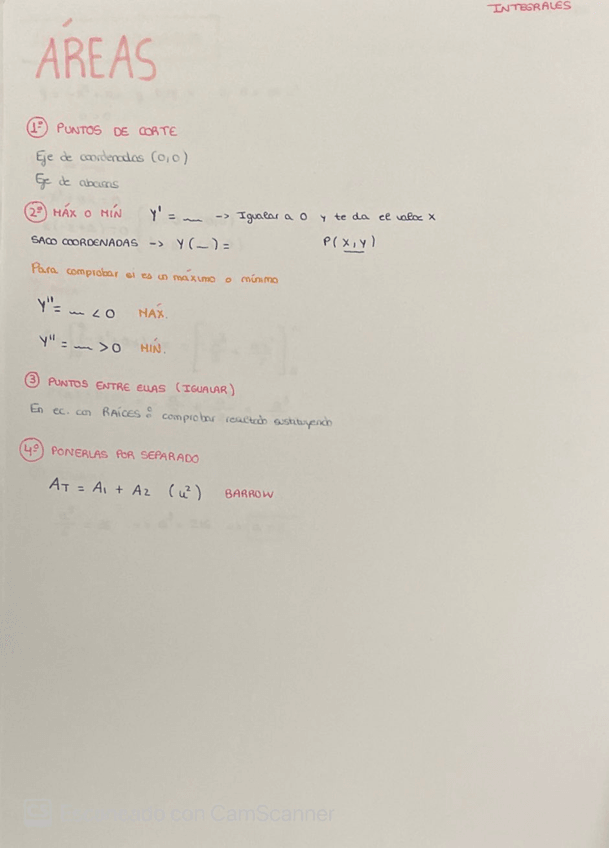 INTEGRALES
ÁREAS
1º PUNTOS DE CORTE
Eje de coordenadas (0,0)
Eje de abcisas
2º MÁX O MÍN Y' = __ -> Igualar a 0 y te da el valor x
SACO COORDENADAS -> Y(_) = P(X,Y)
Para comprobar si es un máximo o mínimo
Y'' = __ < 0 MÁX.
Y'' = __ > 0 MÍN.
3 PUNTOS ENTRE ELLAS (IGUALAR)
En ec. con RAÍCES: comprobar resultado sustituyendo
4º PONERLAS POR SEPARADO
AT = A1 + A2 (u²) BARROW
con CamScanner